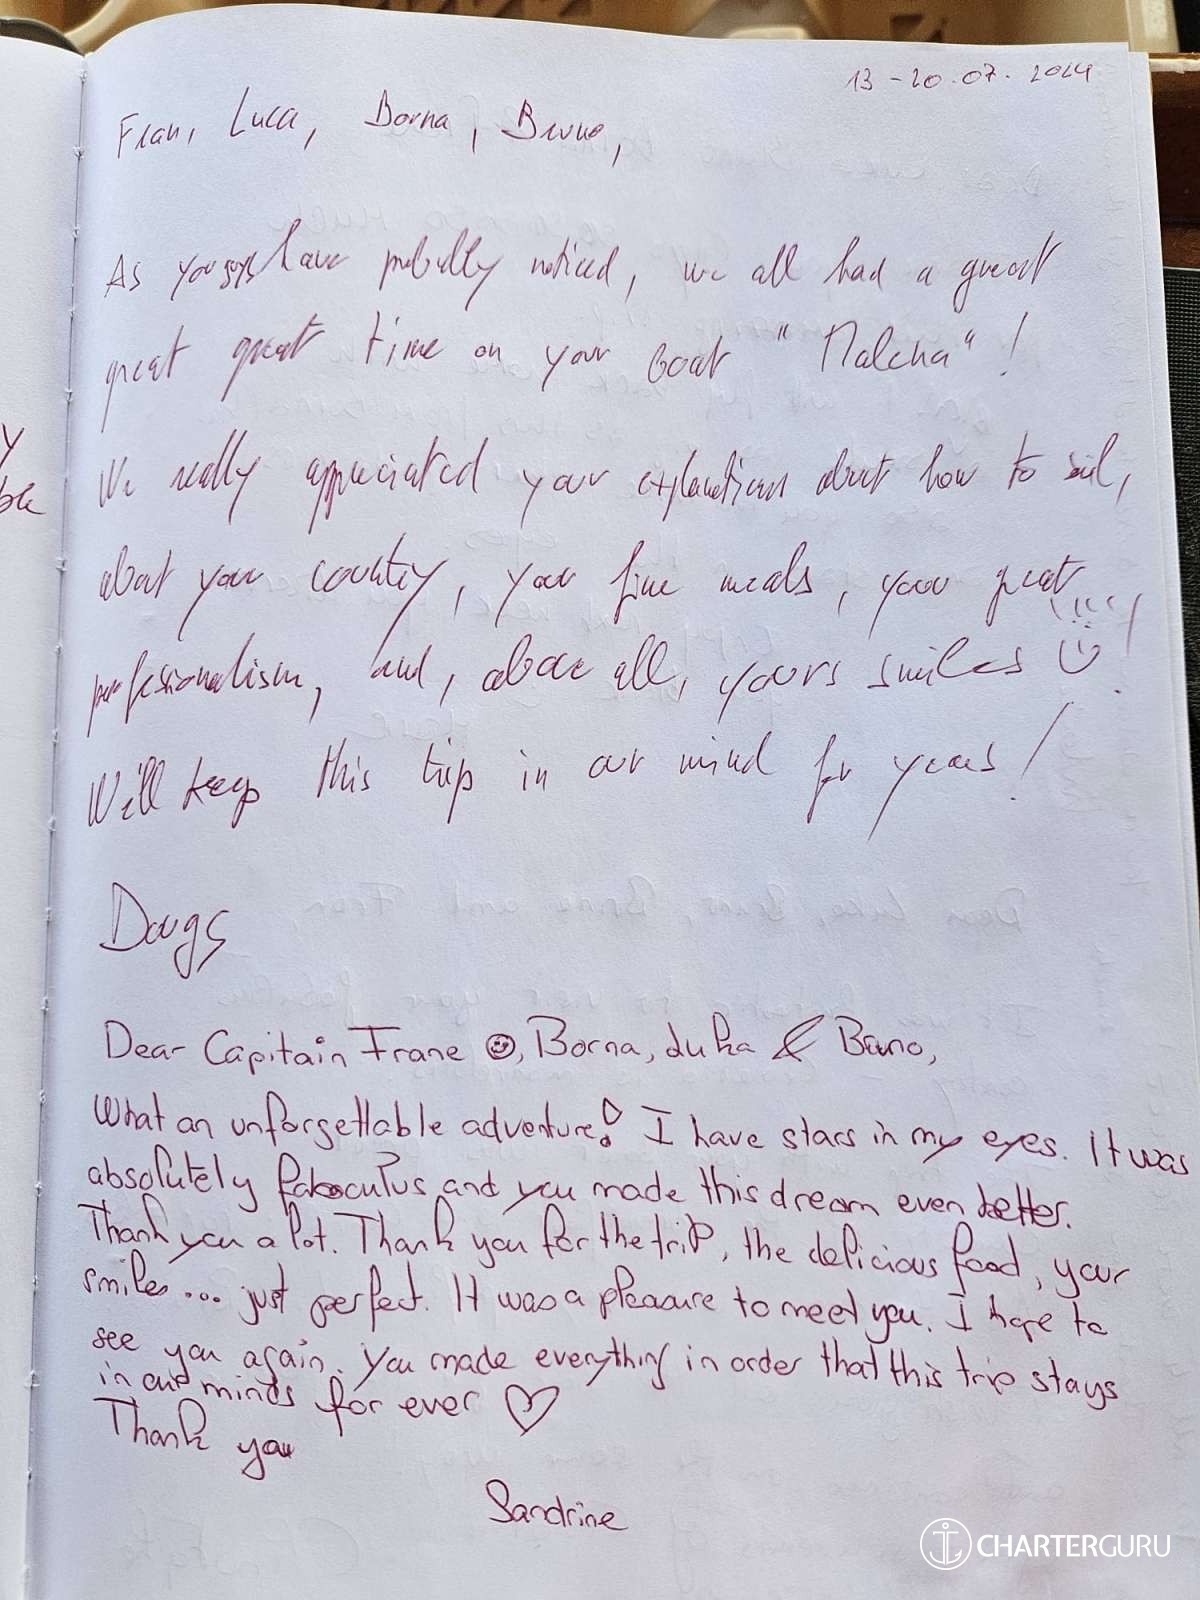 13 - 20.07.2024
Fran, Luca, Borna, Bruno,
As you guys have probably noticed, we all had a great
great great time on your boat " Malena" !
We really appreciated your explanations about how to sail,
about your country, your fine meals, your great
professionalism, and, above all, yours smiles !!!!!
We'll keep this trip in our mind for years !
Dougs
Dear Capitain Frane , Borna, Luka & Bruno,
What an unforgettable adventure! I have stars in my eyes. It was
absolutely and you made this dream even better.
Thank you a lot. Thank you for the trip, the delicious food, your
smiles... just perfect. It was a pleasure to meet you. I hope to
see you again. You made everything in order that this trip stays
in our minds for ever ♡
Thank you
Sandrine
CHARTERGURU